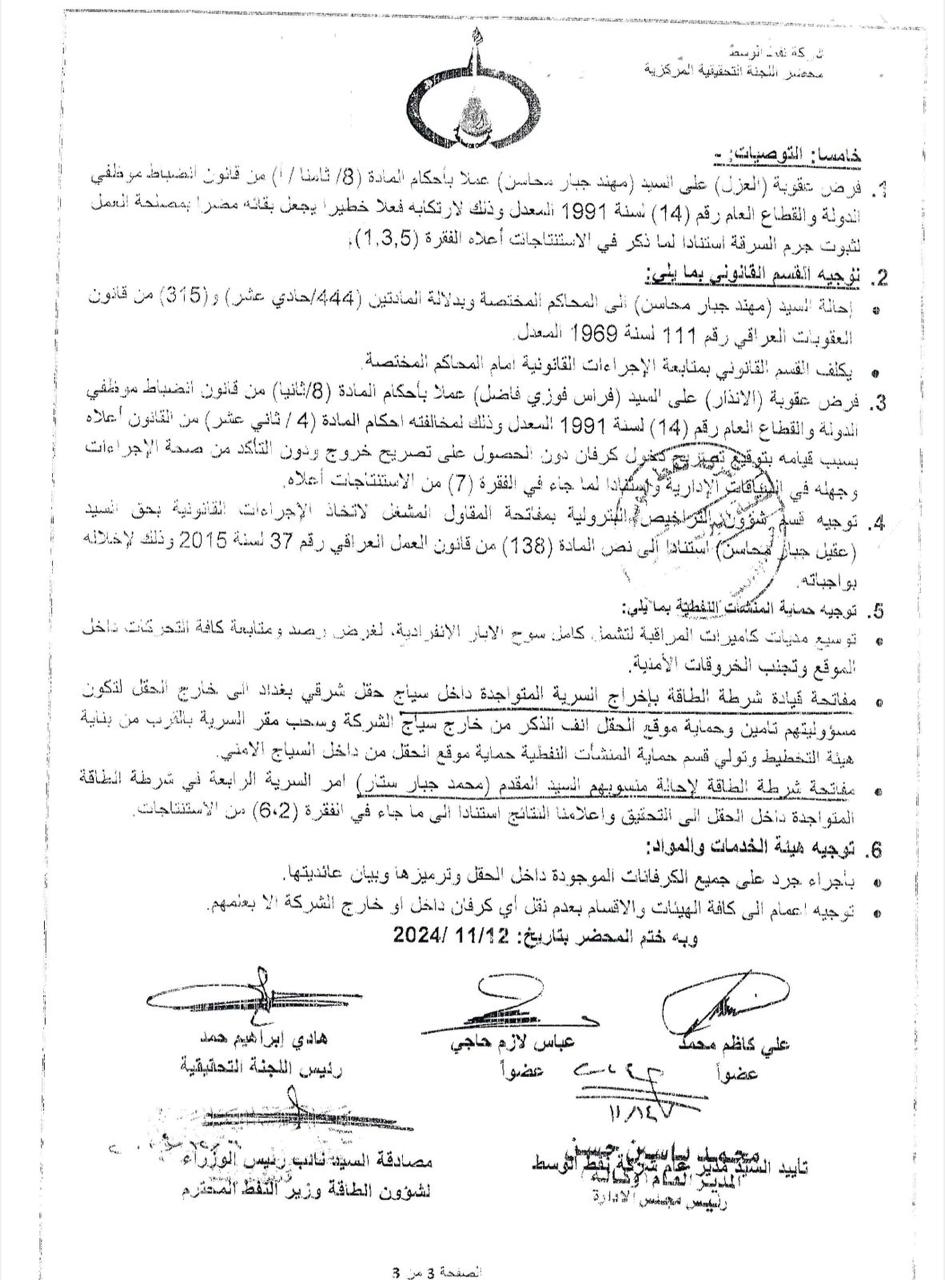 شركة نفط الوسط
محضر اللجنة التحقيقية المركزية
خامسا: التوصيات: -
1. فرض عقوبة (العزل) على السيد (مهند جبار محاسن) عملا بأحكام المادة (8/ ثامنا / أ) من قانون انضباط موظفي
الدولة والقطاع العام رقم (14) لسنة 1991 المعدل وذلك لارتكابه فعلا خطيرا يجعل بقائه مضرا بمصلحة العمل
لثبوت جرم السرقة استنادا لما ذكر في الاستنتاجات أعلاه الفقرة (1,3,5).
2. توجيه القسم القانوني بما يلي:
• إحالة السيد (مهند جبار محاسن) الى المحاكم المختصة وبدلالة المادتين (444/حادي عشر) و(315) من قانون
العقوبات العراقي رقم 111 لسنة 1969 المعدل.
• يكلف القسم القانوني بمتابعة الإجراءات القانونية امام المحاكم المختصة.
3. فرض عقوبة (الانذار) على السيد (فراس فوزي فاضل) عملا بأحكام المادة (8/ثانيا) من قانون انضباط موظفي
الدولة والقطاع العام رقم (14) لسنة 1991 المعدل وذلك لمخالفته احكام المادة (4 / ثاني عشر) من القانون أعلاه
بسبب قيامه بتوقيع تصريح دخول كرفان دون الحصول على تصريح خروج ودون التأكد من صحة الإجراءات
وجهله في السياقات الإدارية واستنادا لما جاء في الفقرة (7) من الاستنتاجات أعلاه.
4. توجيه قسم شؤون التراخيص البترولية بمفاتحة المقاول المشغل لاتخاذ الإجراءات القانونية بحق السيد
(عقيل جبار محاسن) استنادا الى نص المادة (138) من قانون العمل العراقي رقم 37 لسنة 2015 وذلك لإخلاله
بواجباته.
5. توجيه حماية المنشآت النفطية بما يلي:
• توسيع مديات كاميرات المراقبة لتشمل كامل سوح الابار الانفرادية، لغرض رصد ومتابعة كافة التحركات داخل
الموقع وتجنب الخروقات الأمنية.
• مفاتحة قيادة شرطة الطاقة بإخراج السرية المتواجدة داخل سياج حقل شرقي بغداد الى خارج الحقل لتكون
مسؤوليتهم تامين وحماية موقع الحقل انف الذكر من خارج سياج الشركة وسحب مقر السرية بالقرب من بناية
هيئة التخطيط وتولي قسم حماية المنشآت النفطية حماية موقع الحقل من داخل السياج الامني.
• مفاتحة شرطة الطاقة لإحالة منسوبهم السيد المقدم (محمد جبار ستار) امر السرية الرابعة في شرطة الطاقة
المتواجدة داخل الحقل الى التحقيق واعلامنا النتائج استنادا الى ما جاء في الفقرة (6،2) من الاستنتاجات.
6. توجيه هيئة الخدمات والمواد:
• بأجراء جرد على جميع الكرفانات الموجودة داخل الحقل وترميزها وبيان عائديتها.
• توجيه اعمام الى كافة الهيئات والاقسام بعدم نقل أي كرفان داخل او خارج الشركة الا بعلمهم.
وبه ختم المحضر بتاريخ: 11/12 /2024
علي كاظم محمد
عضواً
عباس لازم حاجي
عضواً
هادي إبراهيم حمد
رئيس اللجنة التحقيقية
١١/١٤
محمد ياسين حسن
تأييد السيد مدير عام شركة نفط الوسط
المدير العام وكالة
رئيس مجلس الادارة
مصادقة السيد نائب رئيس الوزراء
لشؤون الطاقة وزير النفط المحترم
الصفحة 3 من 3